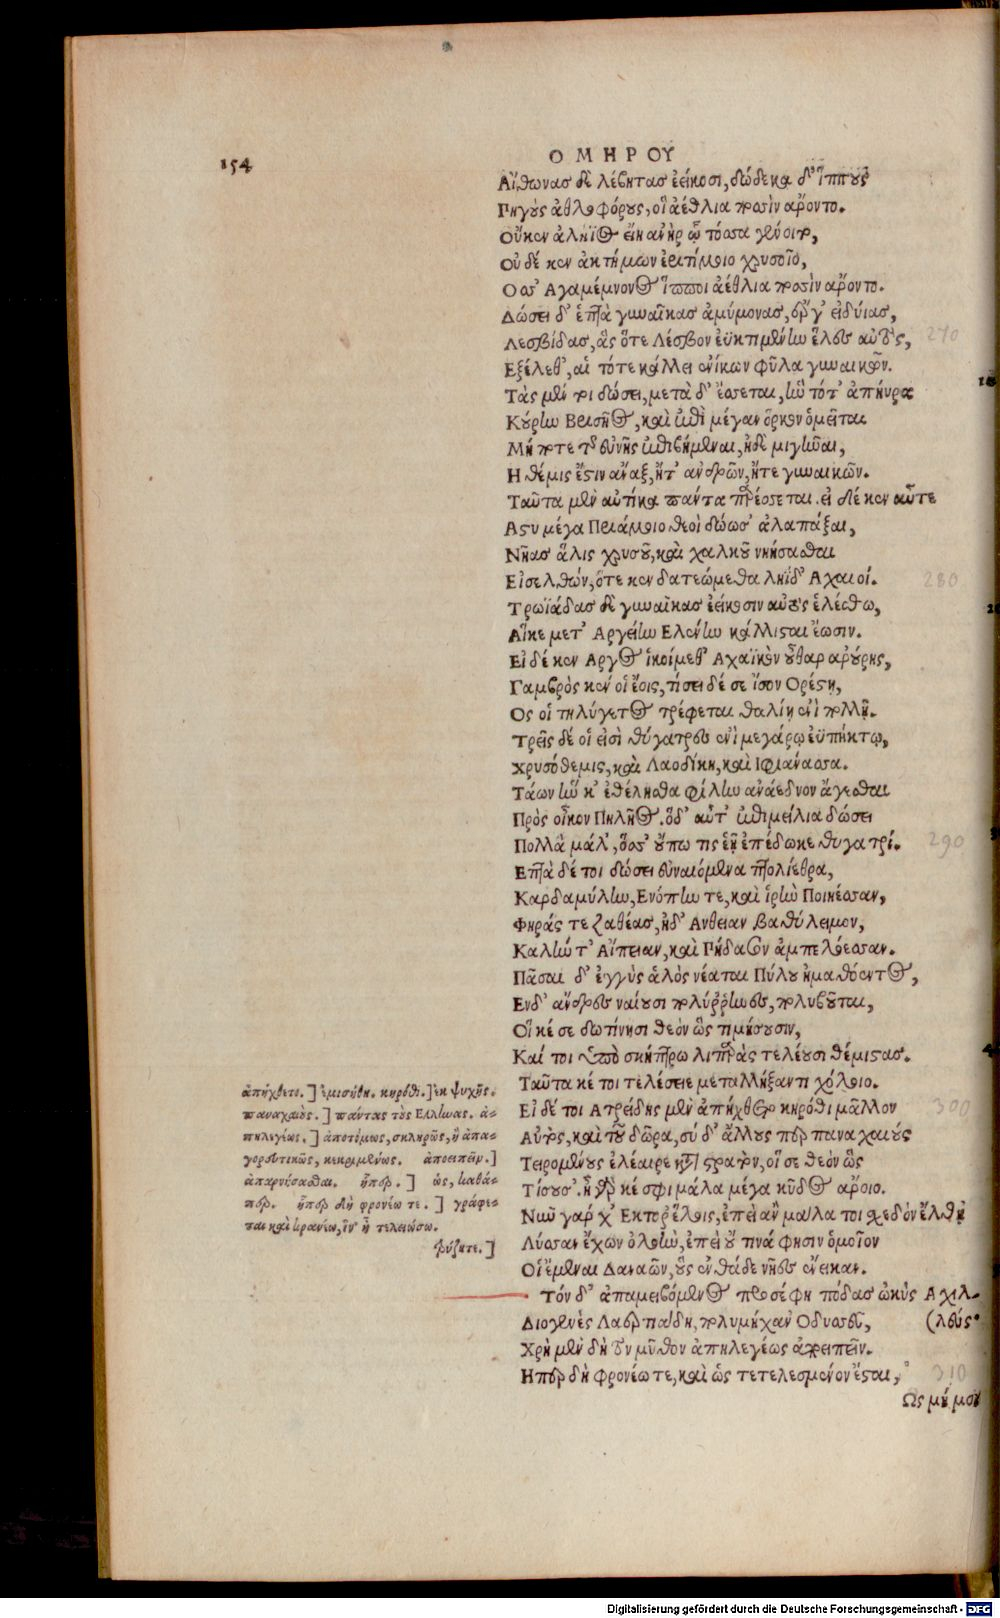 154
ΟΜΗΡΟΥ
Αἴθωνας δὲ λέβητας ἐείκοσι, δώδεκα δ' ἵππους
Πηγοὺς ἀθλοφόρους, οἳ ἀέθλια ποσσὶν ἄροντο.
Οὔ κεν ἀλήϊος εἴη ἀνὴρ ᾧ τόσσα γένοιτο,
Οὐδέ κεν ἀκτήμων ἐριτίμοιο χρυσοῖο,
Οσσ' Αγαμέμνονος ἵπποι ἀέθλια ποσσὶν ἄροντο.
Δώσει δ' ἑπτὰ γυναῖκας ἀμύμονας, ἔργ' εἰδυίας,
Λεσβίδας, ἃς ὅτε Λέσβον ἐϋκτιμένην ἕλες αὐτὸς,
270
Εξέλεθ', αἳ τότε κάλλει ἐνίκων φῦλα γυναικῶν.
Τὰς μέν τοι δώσει, μετὰ δ' ἔσσεται, ἣν τότ' ἀπηύρα
Κούρην Βρισῆος, καὶ ἐπὶ μέγαν ὅρκον ὀμεῖται
Μή ποτε τῆς εὐνῆς ἐπιβήμεναι, ἠδὲ μιγῆναι,
Η θέμις ἔστιν ἄναξ, ἤτ' ἀνδρῶν, ἤτε γυναικῶν.
Ταῦτα μὲν αὐτίκα πάντα παρέσσεται. εἰ δέ κεν αὖτε
Αστυ μέγα Πριάμοιο θεοὶ δώωσ' ἀλαπάξαι,
Νῆας ἅλις χρυσοῦ, καὶ χαλκοῦ νηήσασθαι
Εἰσελθών, ὅτε κεν δατεώμεθα ληΐδ' Αχαιοί.
280
Τρωϊάδας δὲ γυναῖκας ἐείκοσιν αὐτὸς ἑλέσθω,
Αἵκε μετ' Αργείην Ελένην κάλλισται ἔωσιν.
Εἰ δέ κεν Αργος ἱκοίμεθ' Αχαϊκὸν οὖθαρ ἀρούρης,
Γαμβρὸς κέν οἱ ἔοις, τίσει δέ σε ἶσον Ορέστῃ,
Ος οἱ τηλύγετος τρέφεται θαλίῃ ἐνὶ πολλῇ.
Τρεῖς δέ οἱ εἰσὶ θύγατρες ἐνὶ μεγάρῳ ἐϋπήκτῳ,
Χρυσόθεμις, καὶ Λαοδίκη, καὶ Ιφιάνασσα.
Τάων ἥν κ' ἐθέλησθα φίλην ἀνάεδνον ἄγεσθαι
Πρὸς οἶκον Πηλῆος. ὅδ' αὖτ' ἐπιμείλια δώσει
Πολλὰ μάλ', ὅσσ' οὔπω τις ἑῇ ἐπέδωκε θυγατρί.
290
Επτὰ δέ τοι δώσει εὐναιόμενα πτολίεθρα,
Καρδαμύλην, Ενόπην τε, καὶ ἱρὴν Ποιήεσσαν,
Φηράς τε ζαθέας, ἠδ' Ανθειαν βαθύλειμον,
Καλήν τ' Αἴπειαν, καὶ Πήδασον ἀμπελόεσσαν.
Πᾶσαι δ' ἐγγὺς ἁλὸς νέαται Πύλου ἠμαθόεντος,
Ενδ' ἄνδρες ναίουσι πολύρρηνες, πολυβοῦται,
Οἵ κέ σε δωτίνῃσι θεὸν ὣς τιμήσουσιν,
Καί τοι ὑπὸ σκήπτρῳ λιπαρὰς τελέουσι θέμιστας.
Ταῦτα κέ τοι τελέσειε μεταλλήξαντι χόλοιο.
Εἰ δέ τοι Ατρείδης μὲν ἀπήχθετο κηρόθι μᾶλλον
300
Αὐτὸς, καὶ τοῦ δῶρα, σύ δ' ἄλλους περ παναχαιούς
Τειρομένους ἐλέαιρε κατὰ στρατὸν, οἵ σε θεὸν ὣς
Τίσουσ'. ἦ γάρ κέ σφι μάλα μέγα κῦδος ἄροιο.
Νῦν γάρ χ' Εκτορ' ἕλοις, ἐπεὶ ἂν μάλα τοι σχεδὸν ἔλθῃ
Λύσσαν ἔχων ὀλοήν, ἐπεὶ οὔ τινά φησιν ὁμοῖον
Οἷ ἔμεναι Δαναῶν, οὓς ἐνθάδε νῆες ἔνεικαν.
Τόν δ' ἀπαμειβόμενος προσέφη πόδας ὠκὺς Αχιλ-
(λεύς.
Διογενὲς Λαερτιάδη, πολυμήχαν' Οδυσσεῦ,
Χρὴ μὲν δὴ τὸν μῦθον ἀπηλεγέως ἀποειπεῖν.
Ηπερ δὴ φρονέω τε, καὶ ὡς τετελεσμένον ἔσται,
310
Ως μή μοι
ἀπήχθετο.] ἐμισήθη. κηρόθι.] ἐκ ψυχῆς.
παναχαιούς.] πάντας τοὺς Ελληνας. ἀ-
πηλεγέως.] ἀποτόμως, σκληρῶς, ἢ ἀπα-
γορευτικῶς, κεκριμένως. ἀποειπεῖν.]
ἀπαρνήσασθαι. ᾗπερ.] ὡς, καθά-
περ. ᾗπερ δὴ φρονέω τε.] γράφε-
ται καὶ κρανέω, ἵν' ᾖ τελειώσω.
τρύζητε.]
Digitalisierung gefördert durch die Deutsche Forschungsgemeinschaft - DFG